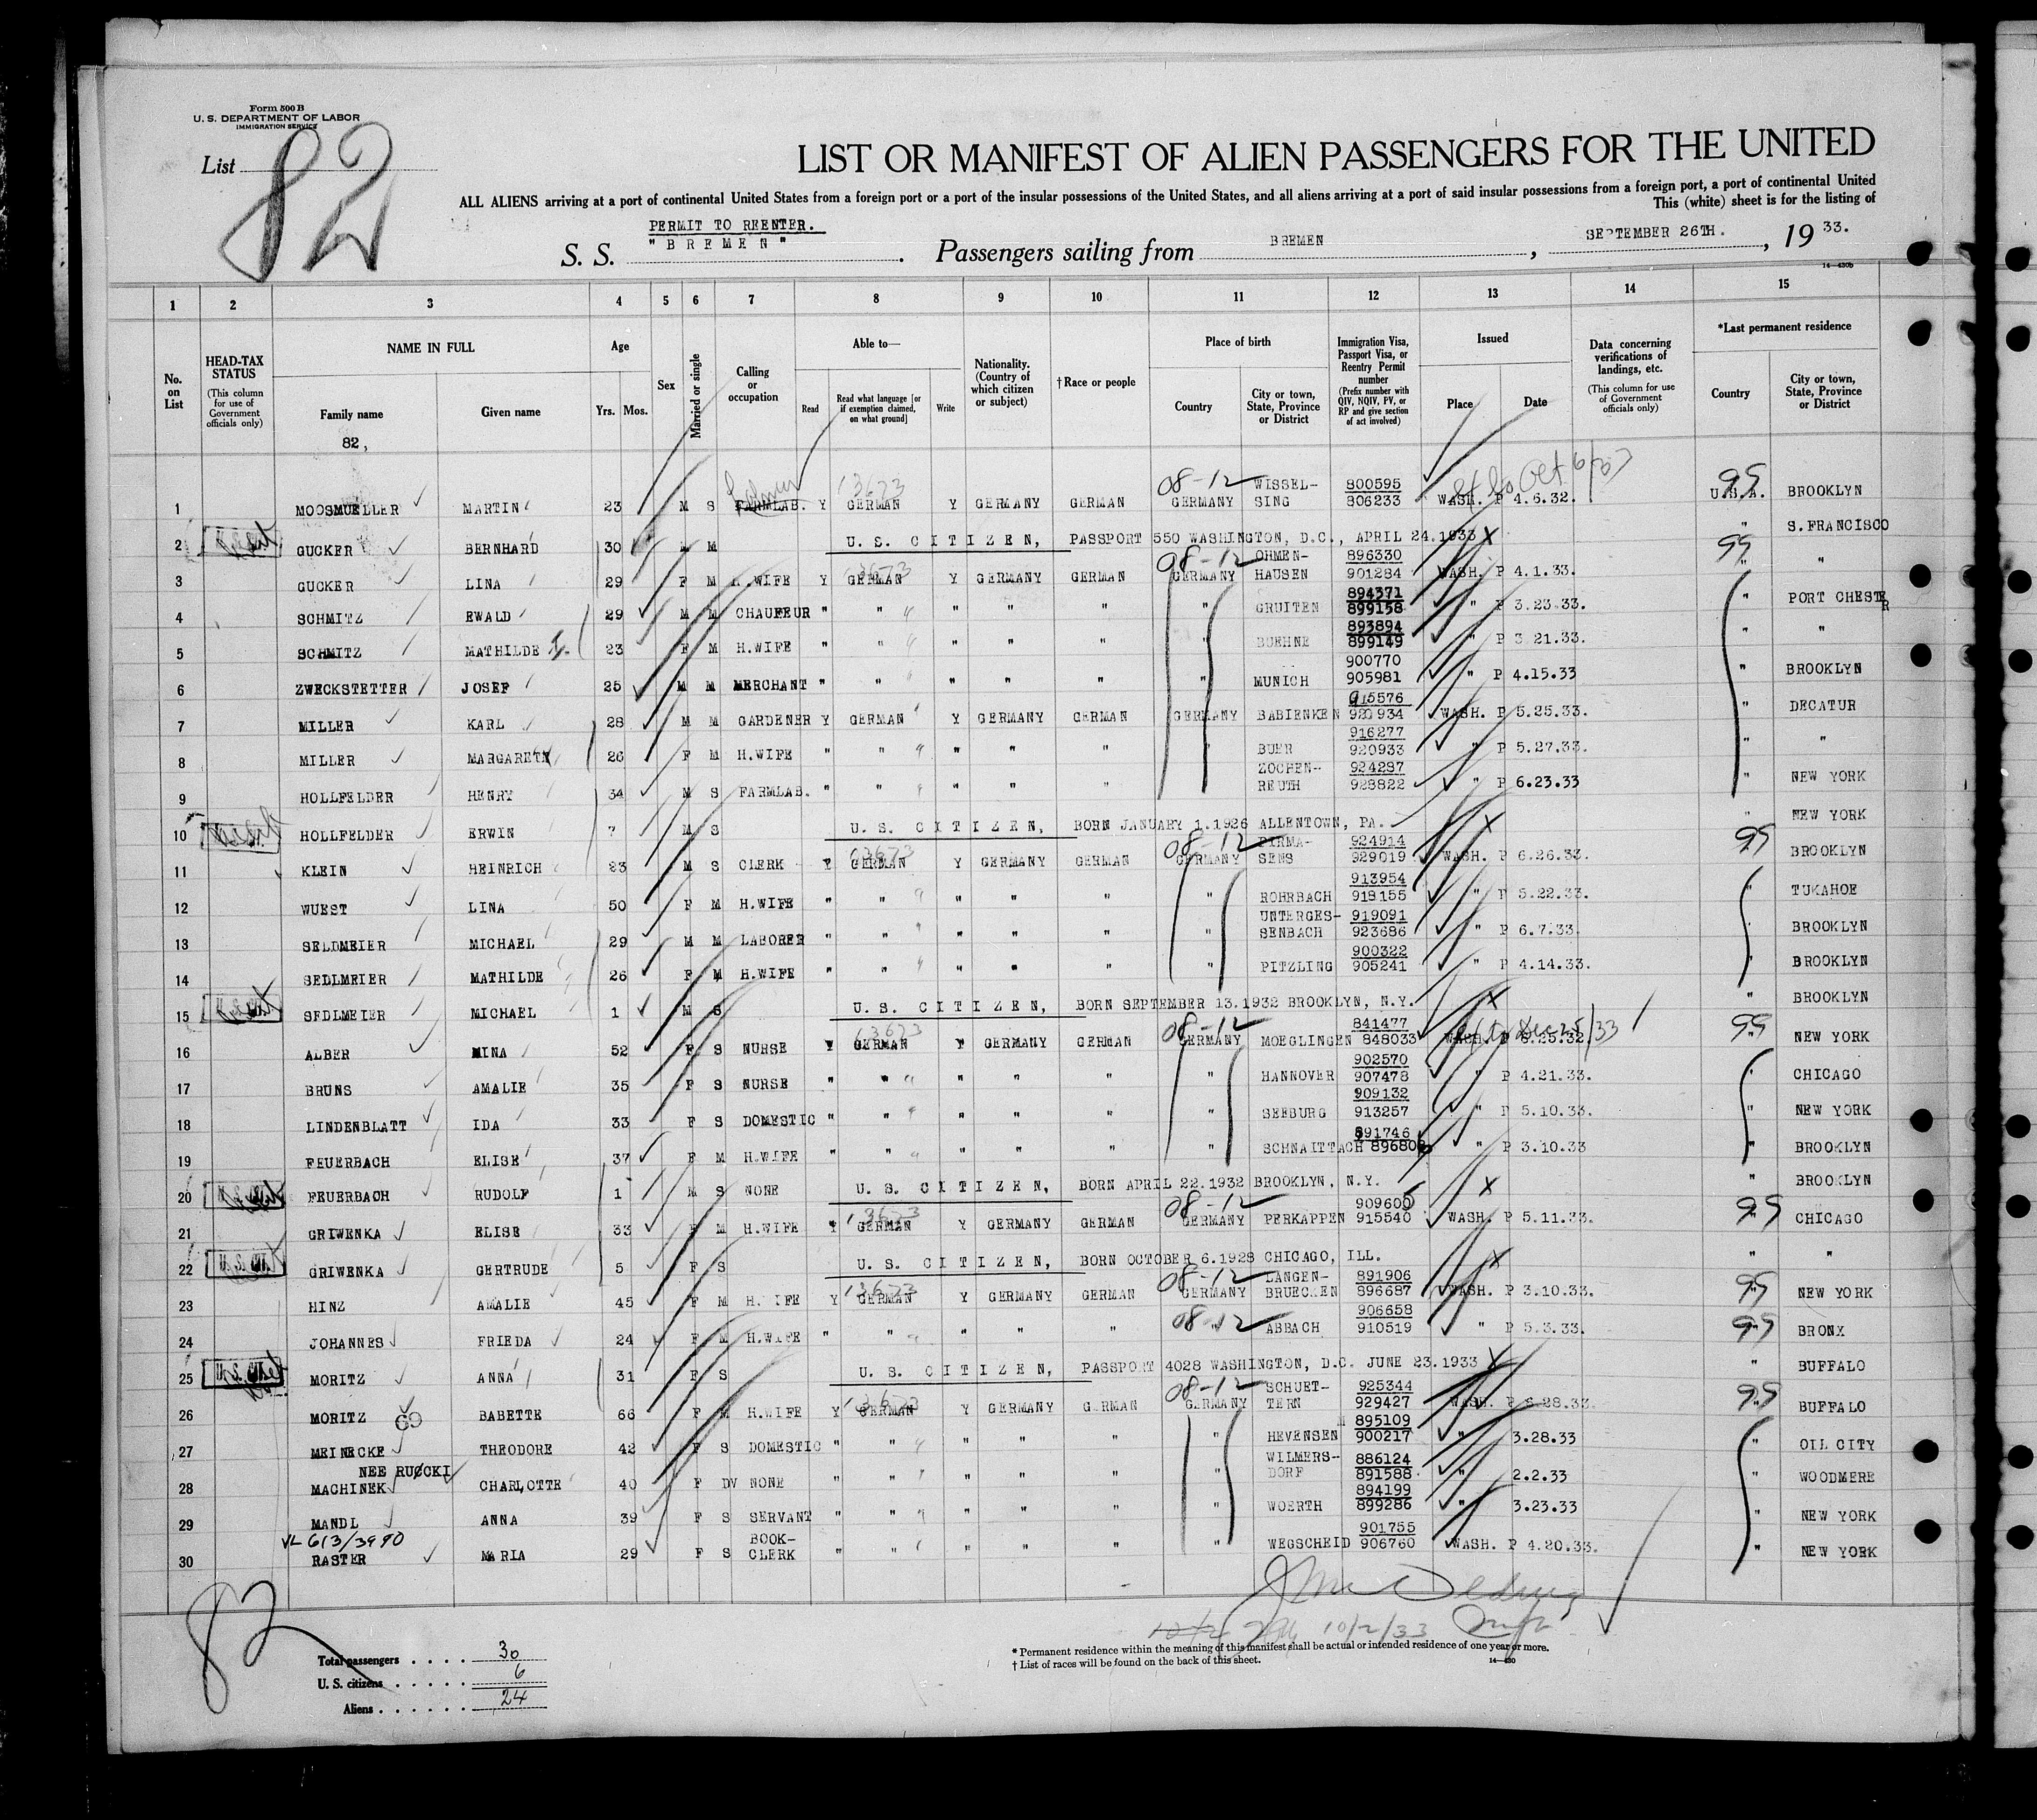 Form 500 B
U. S. DEPARTMENT OF LABOR
IMMIGRATION SERVICE
List 82
LIST OR MANIFEST OF ALIEN PASSENGERS FOR THE UNITED
ALL ALIENS arriving at a port of continental United States from a foreign port or a port of the insular possessions of the United States, and all aliens arriving at a port of said insular possessions from a foreign port, a port of continental United
This (white) sheet is for the listing of
PERMIT TO REENTER.
S. S. "BREMEN". Passengers sailing from BREMEN, SEPTEMBER 26TH., 1933.
14-430b
1 2 3 4 5 6 7 8 9 10 11 12 13 14 15
No. on List
HEAD-TAX STATUS (This column for use of Government officials only)
NAME IN FULL Family name Given name
Age Yrs. Mos.
Sex
Married or single
Calling or occupation
Able to— Read Read what language [or if exemption claimed, on what ground] Write
Nationality. (Country of which citizen or subject)
†Race or people
Place of birth Country City or town, State, Province or District
Immigration Visa, Passport Visa, or Reentry Permit number (Prefix number with QIV, NQIV, PV, or RP and give section of act involved)
Issued Place Date
Data concerning verifications of landings, etc. (This column for use of Government officials only)
*Last permanent residence Country City or town, State, Province or District
82,
1 MOOSMUELLER MARTIN 23 M S FARMLAB. Y GERMAN Y GERMANY GERMAN 08-12 GERMANY WISSEL-SING 800595 806233 WASH. P 4.6.32. 99 U.S.A. BROOKLYN
2 GUCKER BERNHARD 30 M M U. S. CITIZEN, PASSPORT 550 WASHINGTON, D.C., APRIL 24.1933 X " S.FRANCISCO
3 GUCKER LINA 29 F M H.WIFE Y GERMAN Y GERMANY GERMAN 08-12 GERMANY OHMEN-HAUSEN 896330 901284 WASH. P 4.1.33. 99 " "
4 SCHMITZ EWALD 29 M M CHAUFEUR " " " " " " GRUITEN 894371 899158 " P 3.23.33. " PORT CHESTER
5 SCHMITZ MATHILDE I. 23 F M H.WIFE " " " " " " BUEHNE 893894 899149 " P 3.21.33. " "
6 ZWECKSTETTER JOSEF 25 M M MERCHANT " " " " " " MUNICH 900770 905981 " P 4.15.33 " BROOKLYN
7 MILLER KARL 28 M M GARDENER Y GERMAN Y GERMANY GERMAN GERMANY BABIENKEN 915576 920934 WASH. P 5.25.33. " DECATUR
8 MILLER MARGARETE 26 F M H.WIFE " " " " " " BUER 916277 920933 " P 5.27.33. " "
9 HOLLFELDER HENRY 34 M S FARMLAB. " " " " " ZOCHEN-REUTH 924287 928822 " P 6.23.33 " NEW YORK
10 HOLLFELDER ERWIN 7 M S U. S. CITIZEN, BORN JANUARY 1.1926 ALLENTOWN, PA. X " NEW YORK
11 KLEIN HEINRICH 23 M S CLERK Y GERMAN Y GERMANY GERMAN 08-12 GERMANY PIRMA-SENS 924914 929019 WASH. P 6.26.33. 99 BROOKLYN
12 WUEST LINA 50 F M H.WIFE " " " " " " ROHRBACH 913954 918155 " P 5.22.33. " TUKAHOE
13 SELDMEIER MICHAEL 29 M M LABORER " " " " " " UNTERGES-SENBACH 919091 923686 " P 6.7.33. " BROOKLYN
14 SEDLMEIER MATHILDE 26 F M H.WIFE " " " " " " PITZLING 900322 905241 " P 4.14.33. " BROOKLYN
15 SEDLMEIER MICHAEL 1 M S U. S. CITIZEN, BORN SEPTEMBER 13.1932 BROOKLYN, N.Y. X " BROOKLYN
16 ALBER MINA 52 F S NURSE Y GERMAN Y GERMANY GERMAN 08-12 GERMANY MOEGLINGEN 841477 848033 WASH. P 25.32 99 NEW YORK
17 BRUNS AMALIE 35 F S NURSE " " " " " " HANNOVER 902570 907478 " P 4.21.33. " CHICAGO
18 LINDENBLATT IDA 33 F S DOMESTIC " " " " " " SEEBURG 909132 913257 " P 5.10.33. " NEW YORK
19 FEUERBACH ELISE 37 F M H.WIFE " " " " " " SCHNAITTACH 891746 896808 " P 3.10.33 " BROOKLYN
20 FEUERBACH RUDOLF 1 M S NONE U. S. CITIZEN, BORN APRIL 22.1932 BROOKLYN, N.Y. X " BROOKLYN
21 GRIWENKA ELISE 33 F M H.WIFE Y GERMAN Y GERMANY GERMAN 08-12 GERMANY PERKAPPEN 909600 915540 WASH. P 5.11.33. 99 CHICAGO
22 U. S. Cit. GRIWENKA GERTRUDE 5 F S U. S. CITIZEN, BORN OCTOBER 6.1928 CHICAGO, ILL. X " "
23 HINZ AMALIE 45 F M H.WIFE Y GERMAN Y GERMANY GERMAN 08-12 GERMANY LANGEN-BRUECKEN 891906 896687 WASH. P 3.10.33. 99 NEW YORK
24 JOHANNES FRIEDA 24 F M H.WIFE " " " " " 08-12 " ABBACH 906658 910519 " P 5.3.33. 99 BRONX
25 U. S. Cit. MORITZ ANNA 31 F S U. S. CITIZEN, PASSPORT 4028 WASHINGTON, D.C. JUNE 23.1933 X " BUFFALO
26 MORITZ 69 BABETTE 66 F M H.WIFE Y GERMAN Y GERMANY GERMAN 08-12 GERMANY SCHUET-TERN 925344 929427 WASH. P 6.28.33. 99 BUFFALO
27 MEINECKE THEODORE 42 F S DOMESTIC " " " " " " HEVENSEN 895109 900217 " 3.28.33 " OIL CITY
28 NEE RUCCKI MACHINEK CHARLOTTE 40 F DV NONE " " " " " " WILMERS-DORF 886124 891588 " 2.2.33 " WOODMERE
29 MANDL ANNA 39 F S SERVANT " " " " " " WOERTH 894199 899286 " 3.23.33 " NEW YORK
VL 613/3990
30 RASTER MARIA 29 F S BOOK-CLERK " " " " " " WEGSCHEID 901755 906760 WASH. P 4.20.33. " NEW YORK
82
10/2/33
Total passengers . . . . 30
U. S. citizens . . . . . 6
Aliens . . . . . . 24
* Permanent residence within the meaning of this manifest shall be actual or intended residence of one year or more.
† List of races will be found on the back of this sheet.
14-430